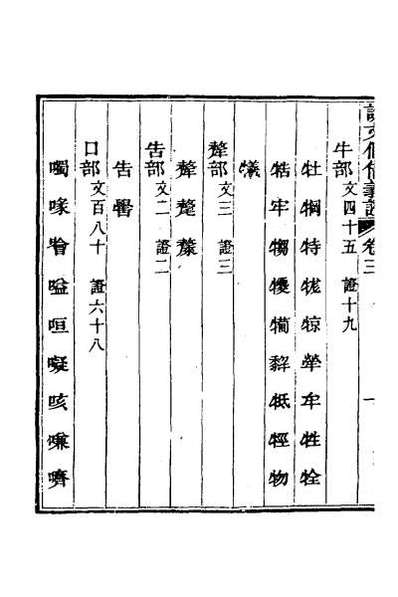 說文假借義證 卷三 一
牛部 文四十五 證十九
牡 犅 特 牻 㹁 犖 牟 牲 牷
牿 牢 犓 㹛 犕 犂 牴 牼 物
犧
犛部 文三 證三
犛 氂 斄
告部 文二 證二
告 嚳
口部 文百八十 證六十八
噣 喙 噲 嗌 咺 㘈 咳 嗛 嚌